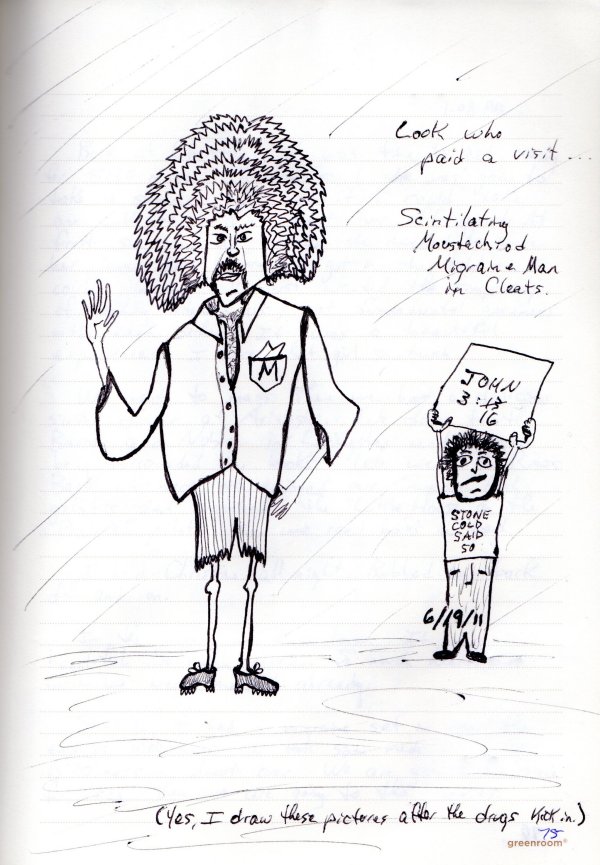 Look who
paid a visit...
Scintilating
Moustachiod
Migraine Man
in Cleats.
M
JOHN
3:15
16
STONE
COLD
SAID
SO
6/19/11
(Yes, I draw these pictures after the drugs kick in.)
75
greenroom®